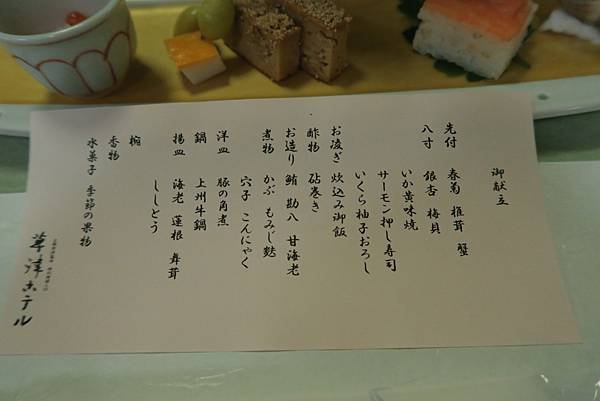 御献立
先付 春菊 椎茸 蟹
八寸 銀杏 梅貝
いか黄味焼
サーモン押し寿司
いくら柚子おろし
お凌ぎ 炊込み御飯
酢物 砧巻き
お造り 鮪 勘八 甘海老
煮物 かぶ もみじ麩
穴子 こんにゃく
洋皿 豚の角煮
鍋 上州牛鍋
揚皿 海老 蓮根 舞茸
ししとう
椀
香物
水菓子 季節の果物
草津ホテル